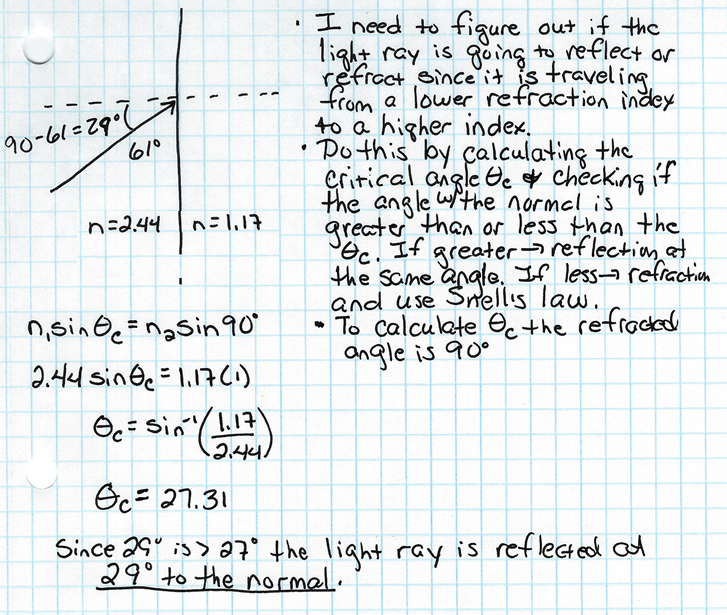 90-61=29°
61°
n=2.44 n=1.17
n₁sinθc=n₂sin90°
2.44sinθc=1.17(1)
θc=sin⁻¹(1.17/2.44)
θc=27.31
• I need to figure out if the
light ray is going to reflect or
refract since it is traveling
from a lower refraction index
to a higher index.
• Do this by calculating the
critical angle θc & checking if
the angle w/the normal is
greater than or less than the
θc. If greater→reflection at
the same angle. If less→refraction
and use Snell's law.
• To calculate θc the refracted
angle is 90°
Since 29° is > 27° the light ray is reflected at
29° to the normal.